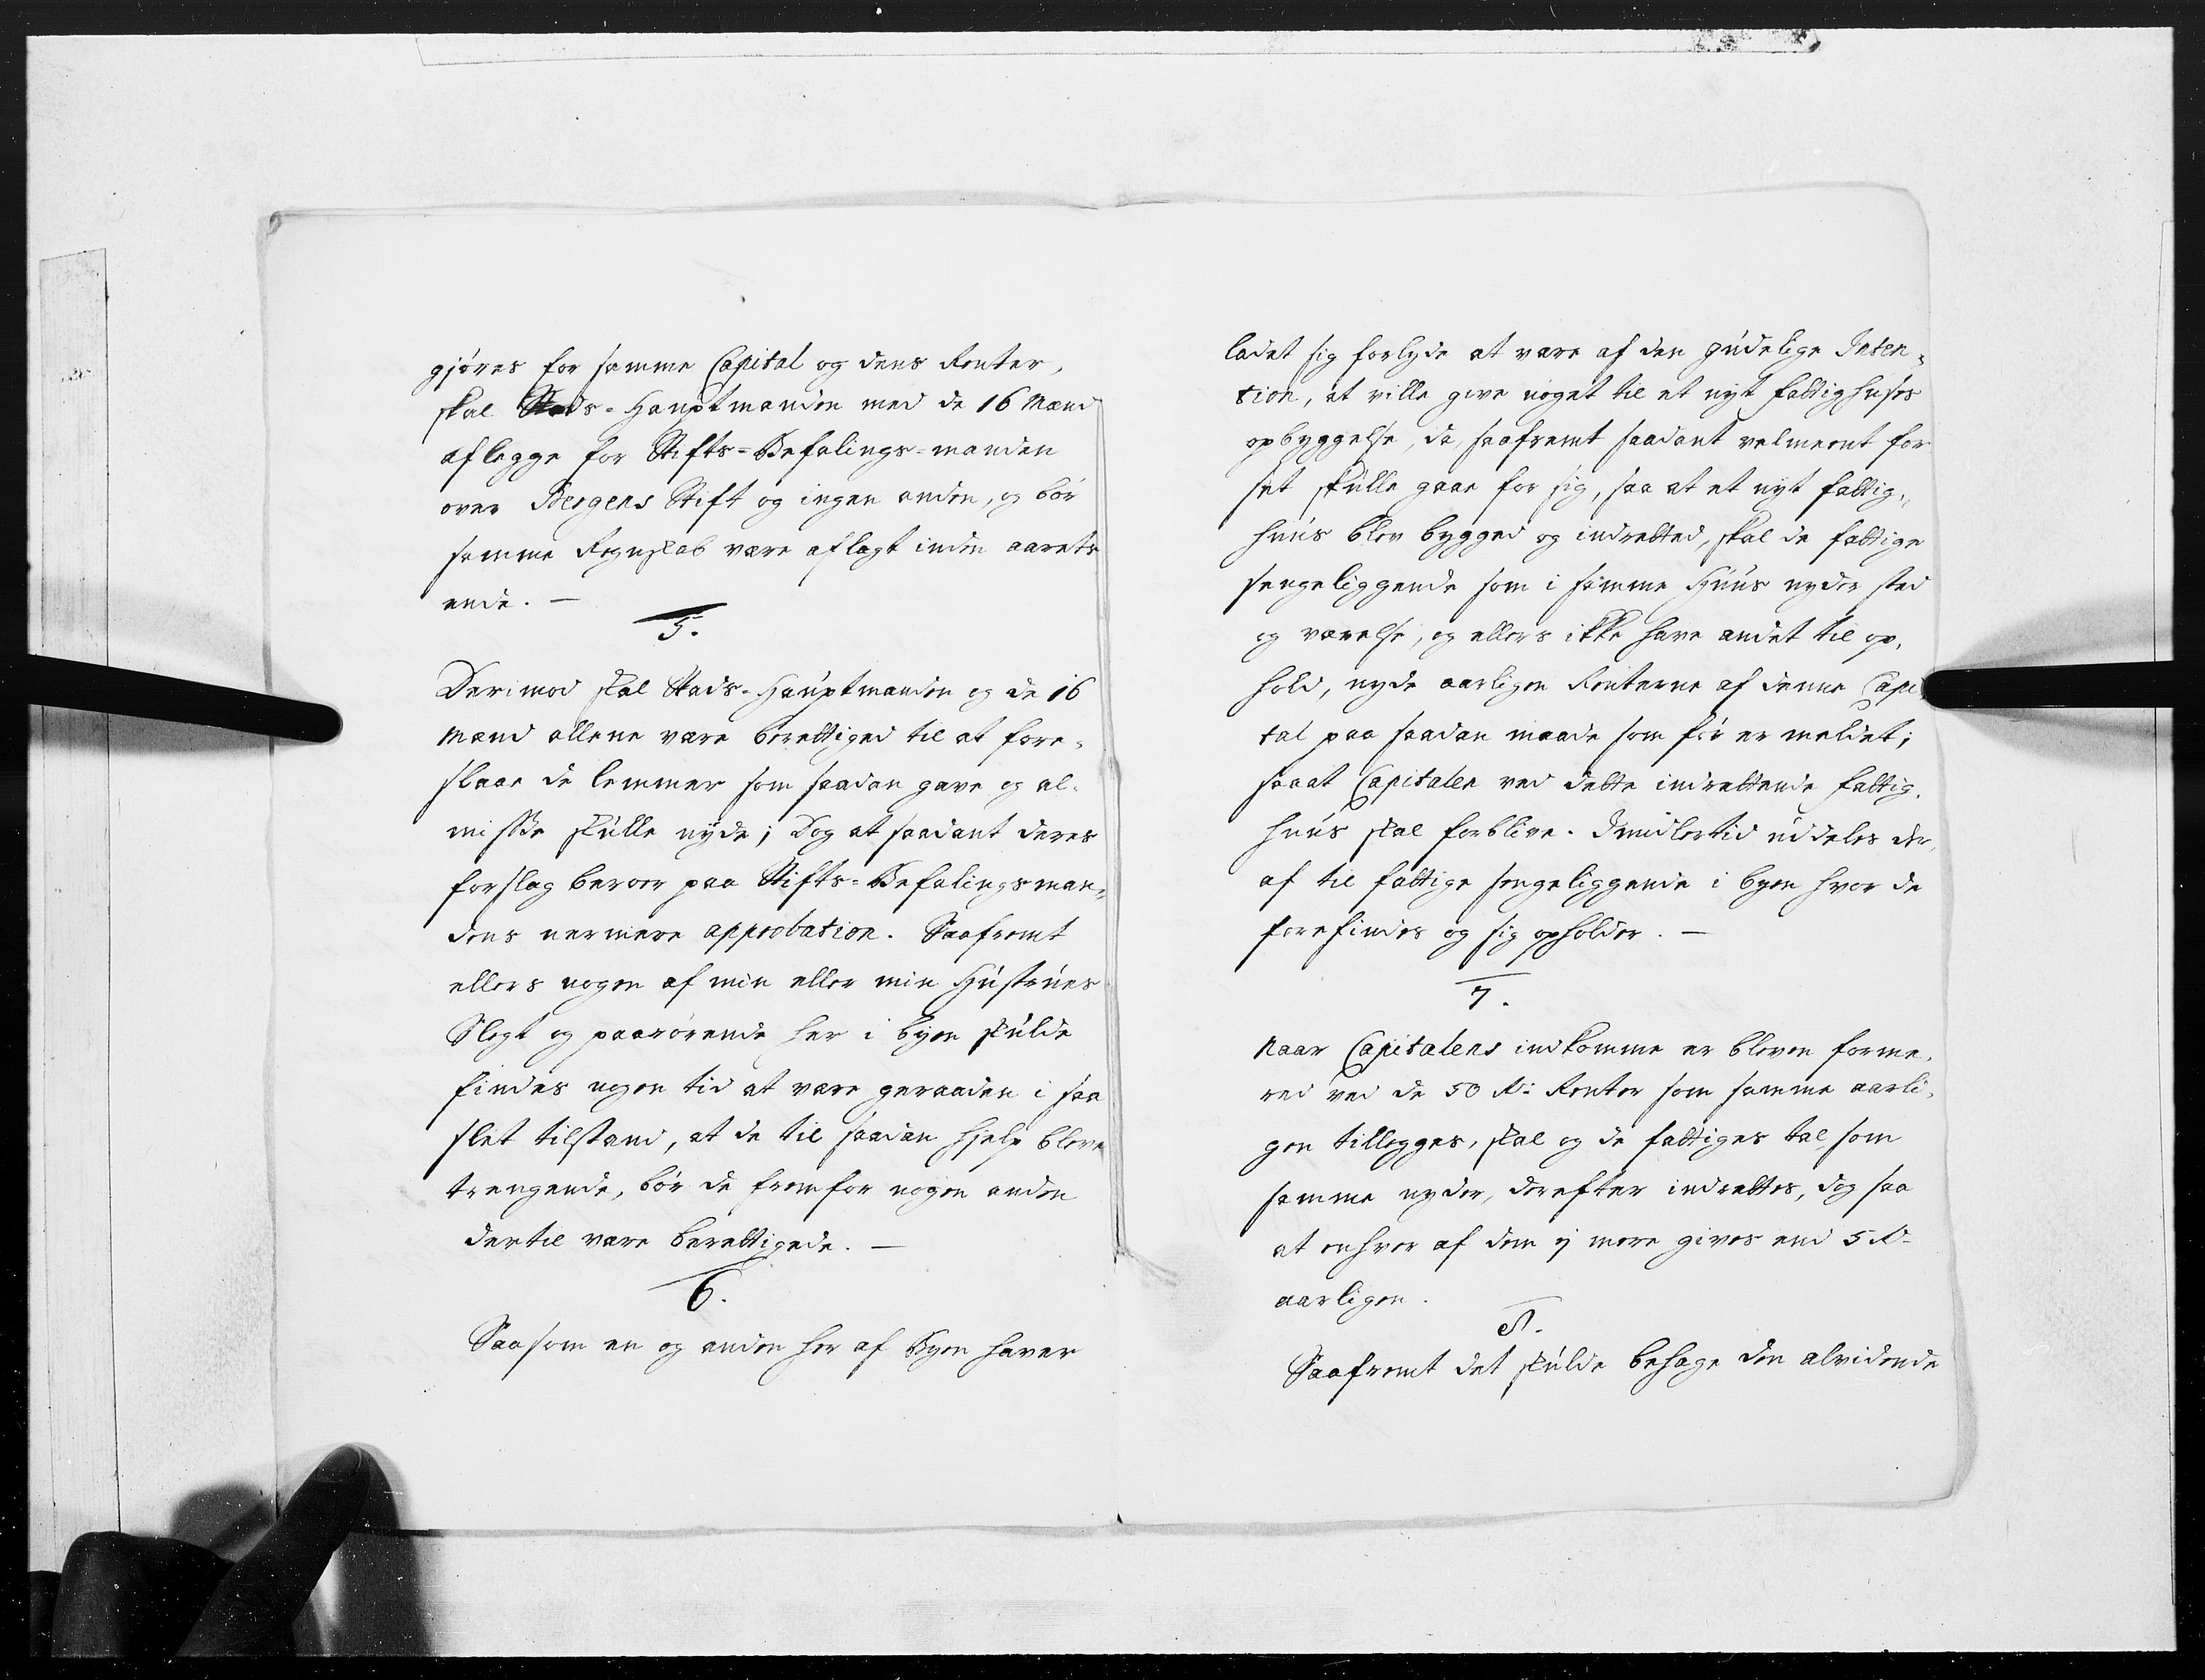 gjøres for samme Capital og dens Renter,
skal Stads-Hauptmanden med de 16 Mænd
aflegge for Stifts-Befalings-manden
over Bergens Stift og ingen anden, og bør
samme Regnskab være aflagt inden aarets
ende. —
5.
Derimod skal Stads-Hauptmanden og de 16
Mænd allene være berettiged til at fore-
slaae de lemmer som saadan gave og al-
misse skulle nyde; Dog at saadant deres
forslag beroer paa Stifts-Befalingsman-
dens nermere approbation. Saafremt
ellers nogen af min eller min Hustrues
Slegt og paarørende her i byen skulde
findes nogen tid at være geraaden i saa
slet tilstand, at de til saadan hjelp bleve
trengende, bør de fremfor nogen anden
dertil være berettigede. —
6.
Saasom en og anden her af Byen haver
ladet sig forlyde at være af den gudelige Inten-
tion, at ville give noget til et nyt fattighuses
opbyggelse, da, saafremt saadant velmeent for
set skulle gaae for sig, saa at et nyt fattig-
huus blev bygged og indretted, skal de fattige
sengeliggende som i samme Huus nyder sted
og værelse, og ellers ikke have andet til op-
hold, nyde aarligen Renterne af denne Capi
tal paa saadan maade som før er meldet;
saa at Capitalen ved dette indrettende fattig-
huus skal forblive. Imidlertid uddeles der-
af til fattige sengeliggende i byen hvor de
forefindes og sig opholder. —
7.
Naar Capitalens indkomme er bleven forme-
red ved de 50 Rd: Renter som samme aarli-
gen tillegges, skal og de fattiges tal, som
samme nyder, derefter indrettes, dog saa
at enhver af dem ej mere gives end 5 Rd
aarligen.
8.
Saafremt det skulde behage den alvidende